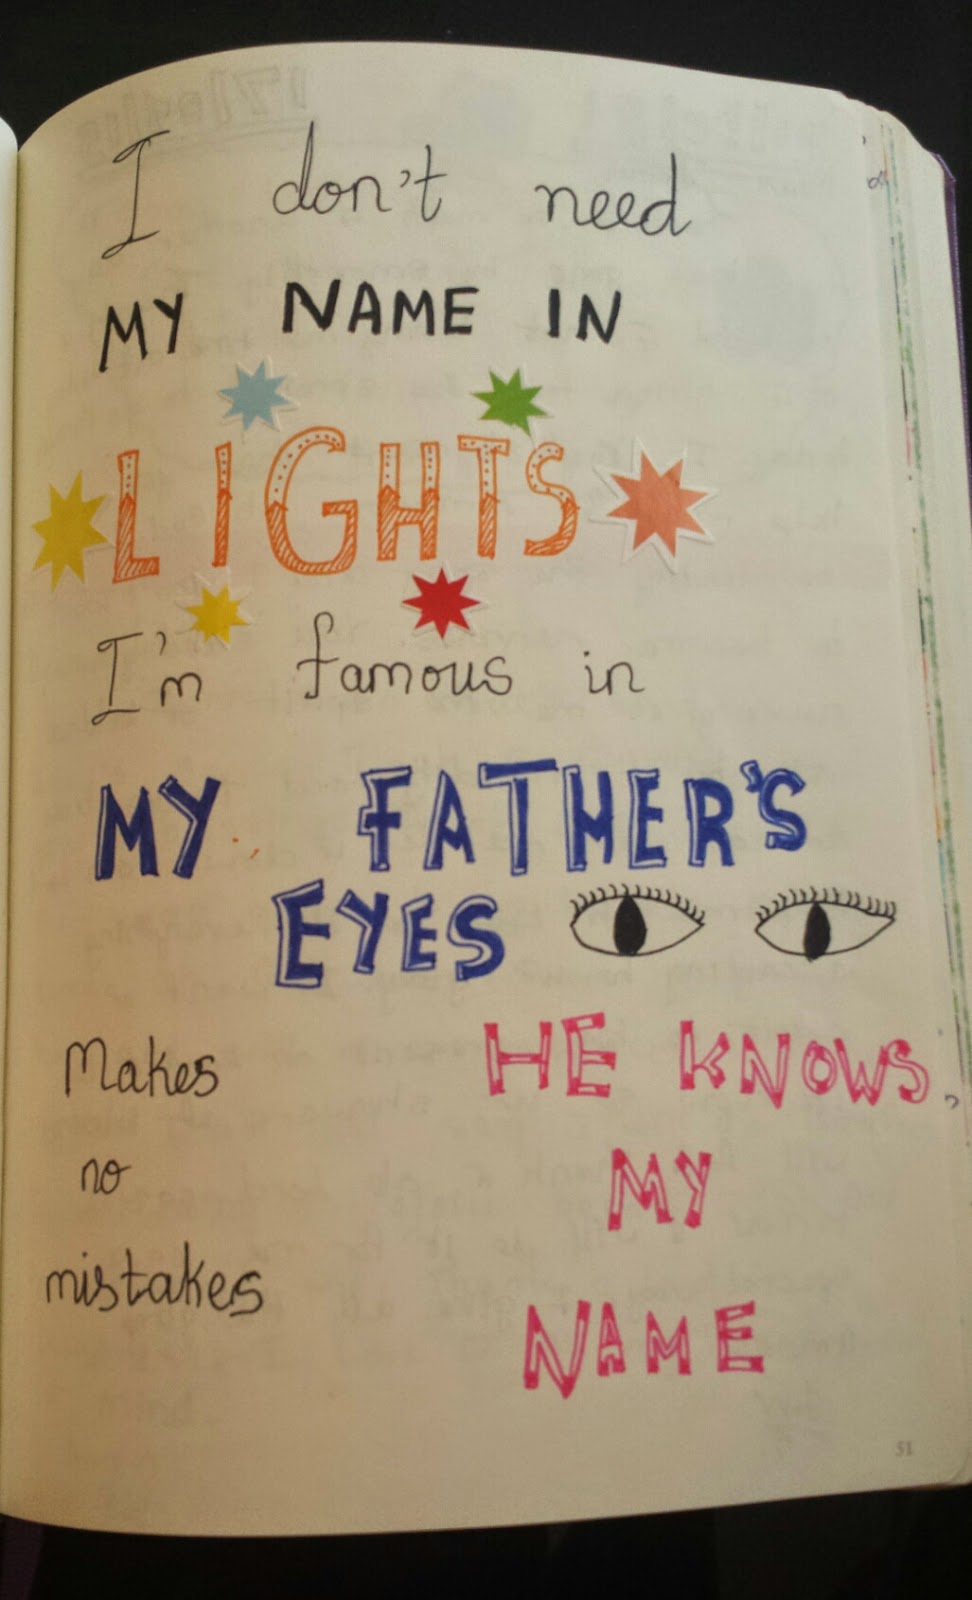 I don't need
MY NAME IN
LIGHTS
I'm famous in
MY FATHER'S
EYES
Makes
no
mistakes
HE KNOWS
MY
NAME
51